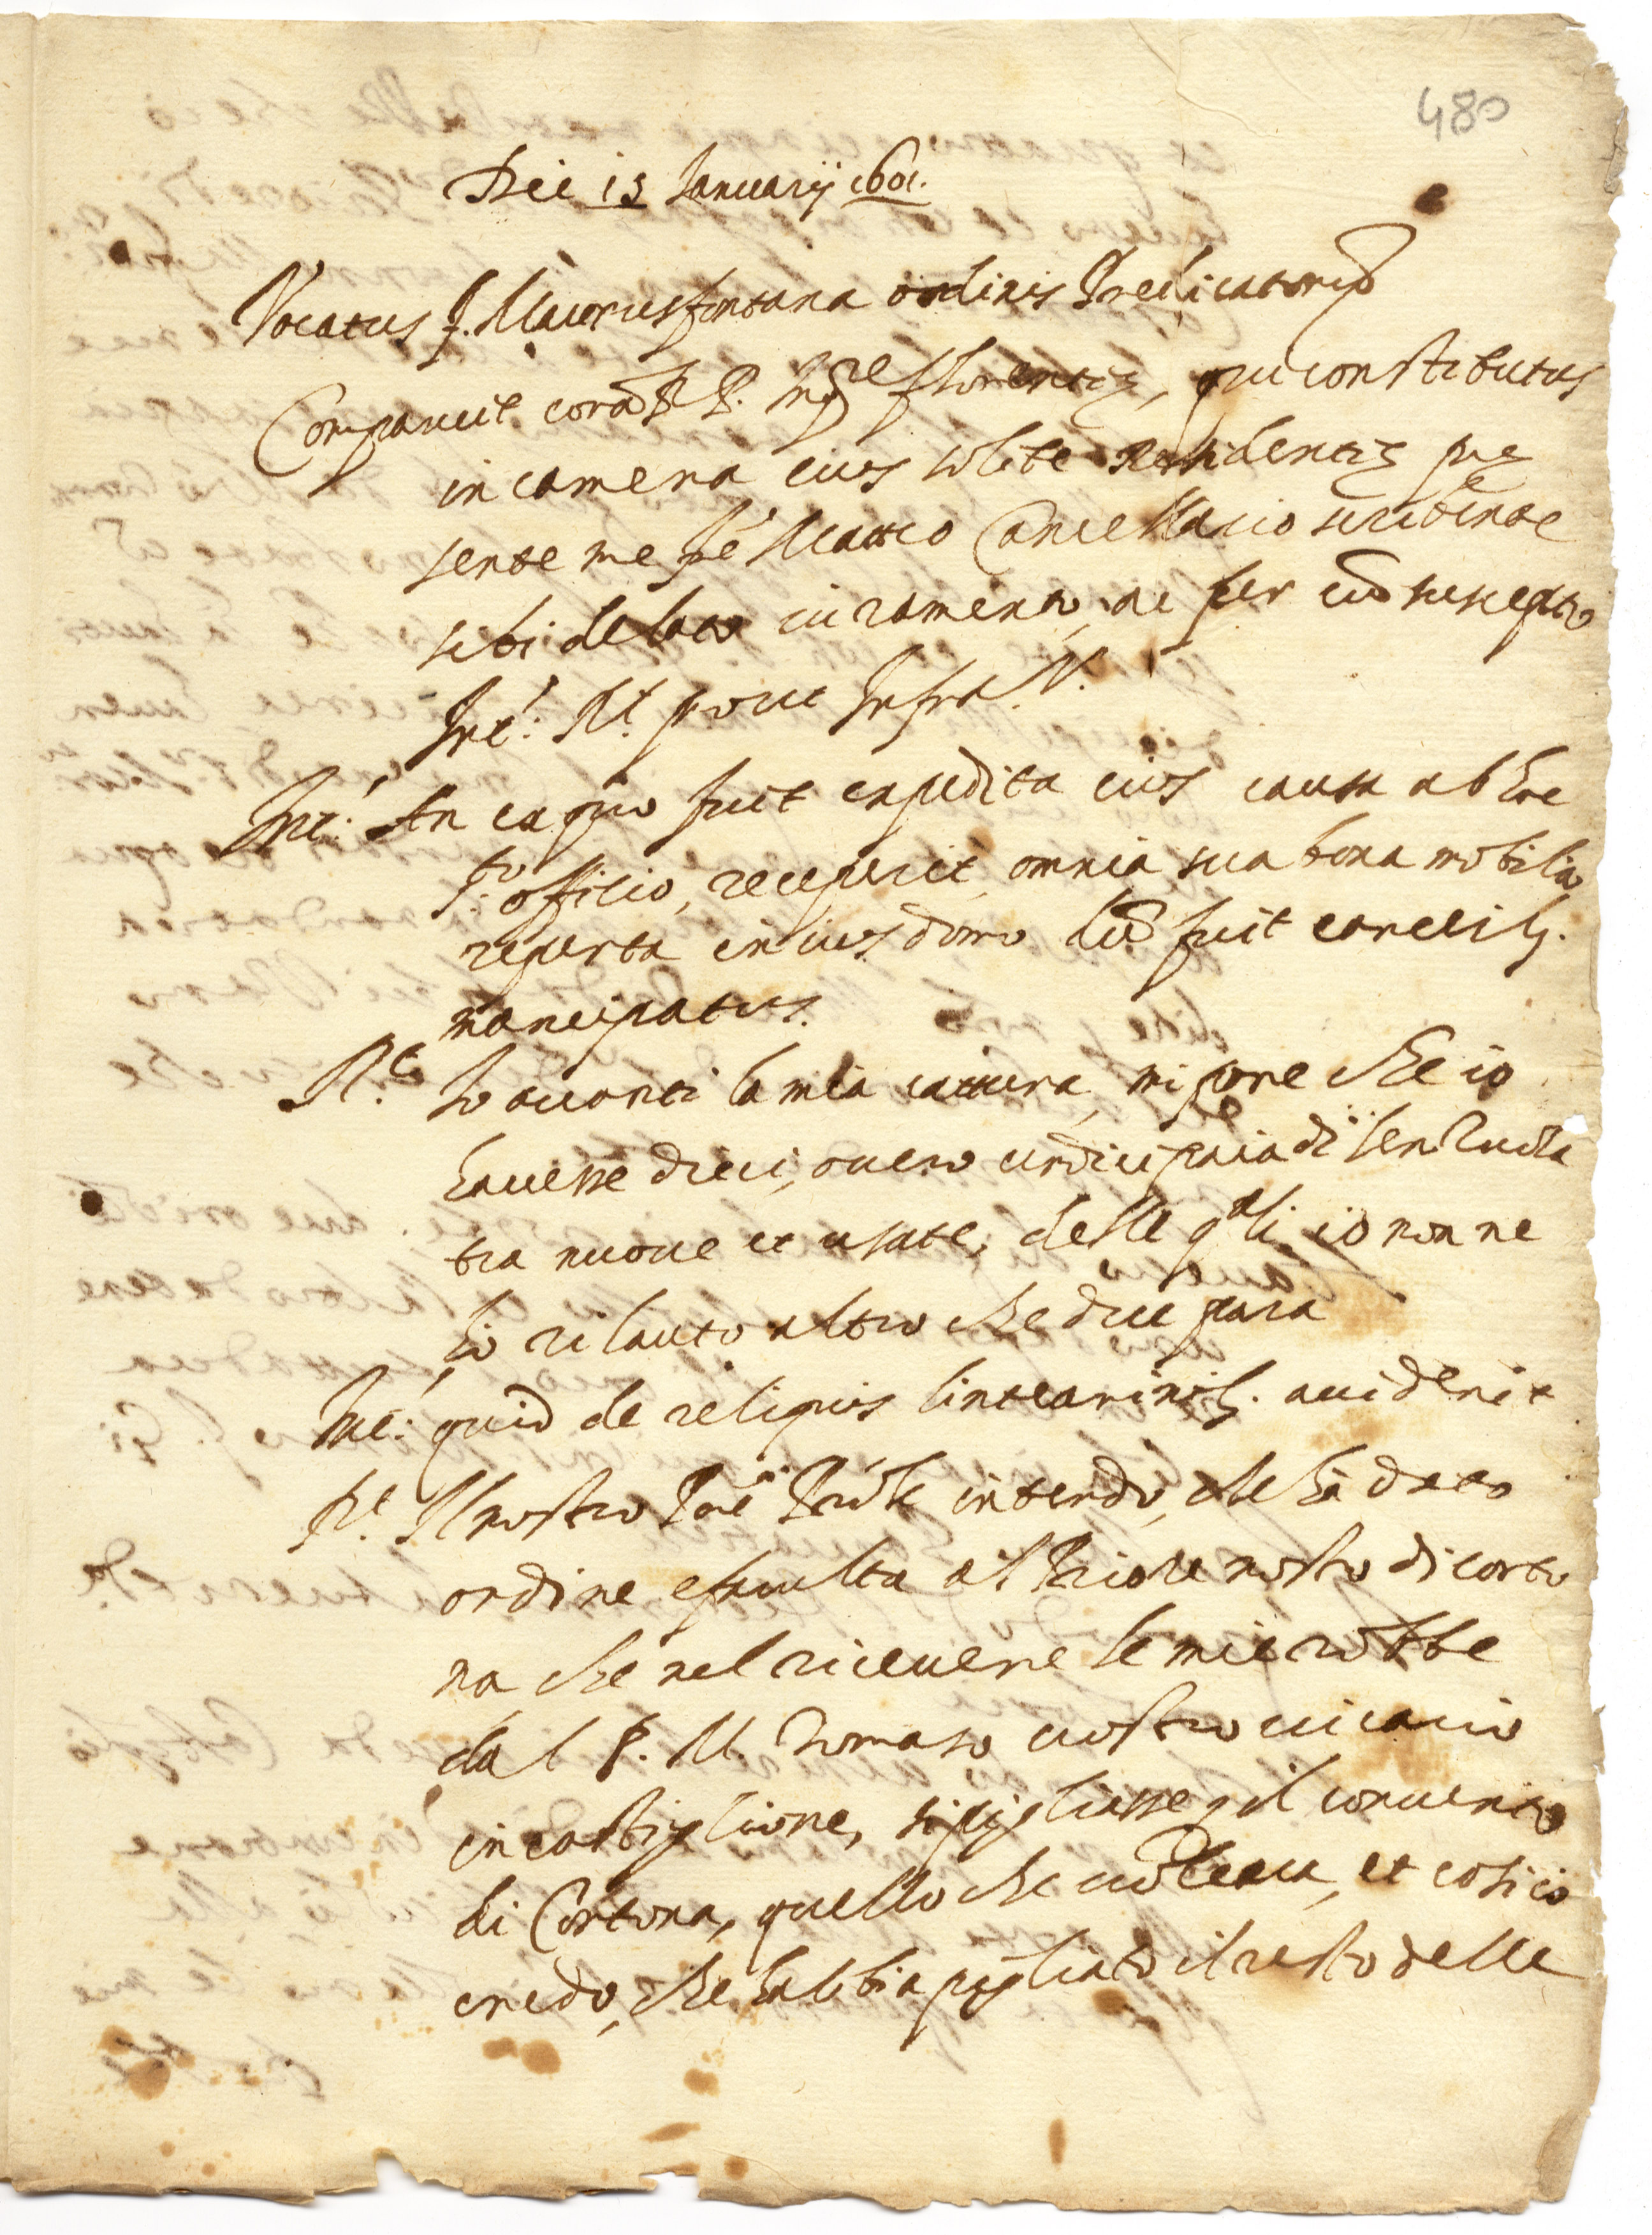 480
Die 13 Januarij 1601.
Vocatus f. Maurus fontana ordinis Predicatorũ
Comparuit corã R. P. Inqre florentię, qui constitutus
in camera eius solite residentię pre
sente me frē Marco Cancellario scribente
sibi delato iuramento, ac per eũ suscepto
Int: Rt. prout Infra V.
Int: An ex quo fuit expedita eius causa ab hoc
sto. offitio, receperit omnia sua bona mobilia
reperta in eius domo dũ fuit carcerib.
mancipatus.
Rt. Io avanti la mia cattura, mi pare che io
havesse dieci, overo undici paia di lenzuola
tra nuove et usate, delle qali io non ne
ho rihauto altro che due para
Int: quid de reliquis linteaminib. acciderit
Rt. Il nostro Pre Prõle intendo, che ha dato
ordine e faculta al Priore nostro di corto
na che nel ricevere le mie robbe
dal P. M. Tomaso vostro vicario
in castiglione, si pigliasse p il convento
di Cortona, quello che voleva, et cosi io
credo, che habbia pigliato il resto delle